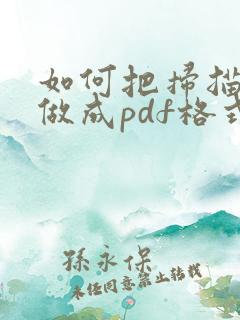 如何把扫描
做成pdf格式
孙永保
未经同意禁止转载